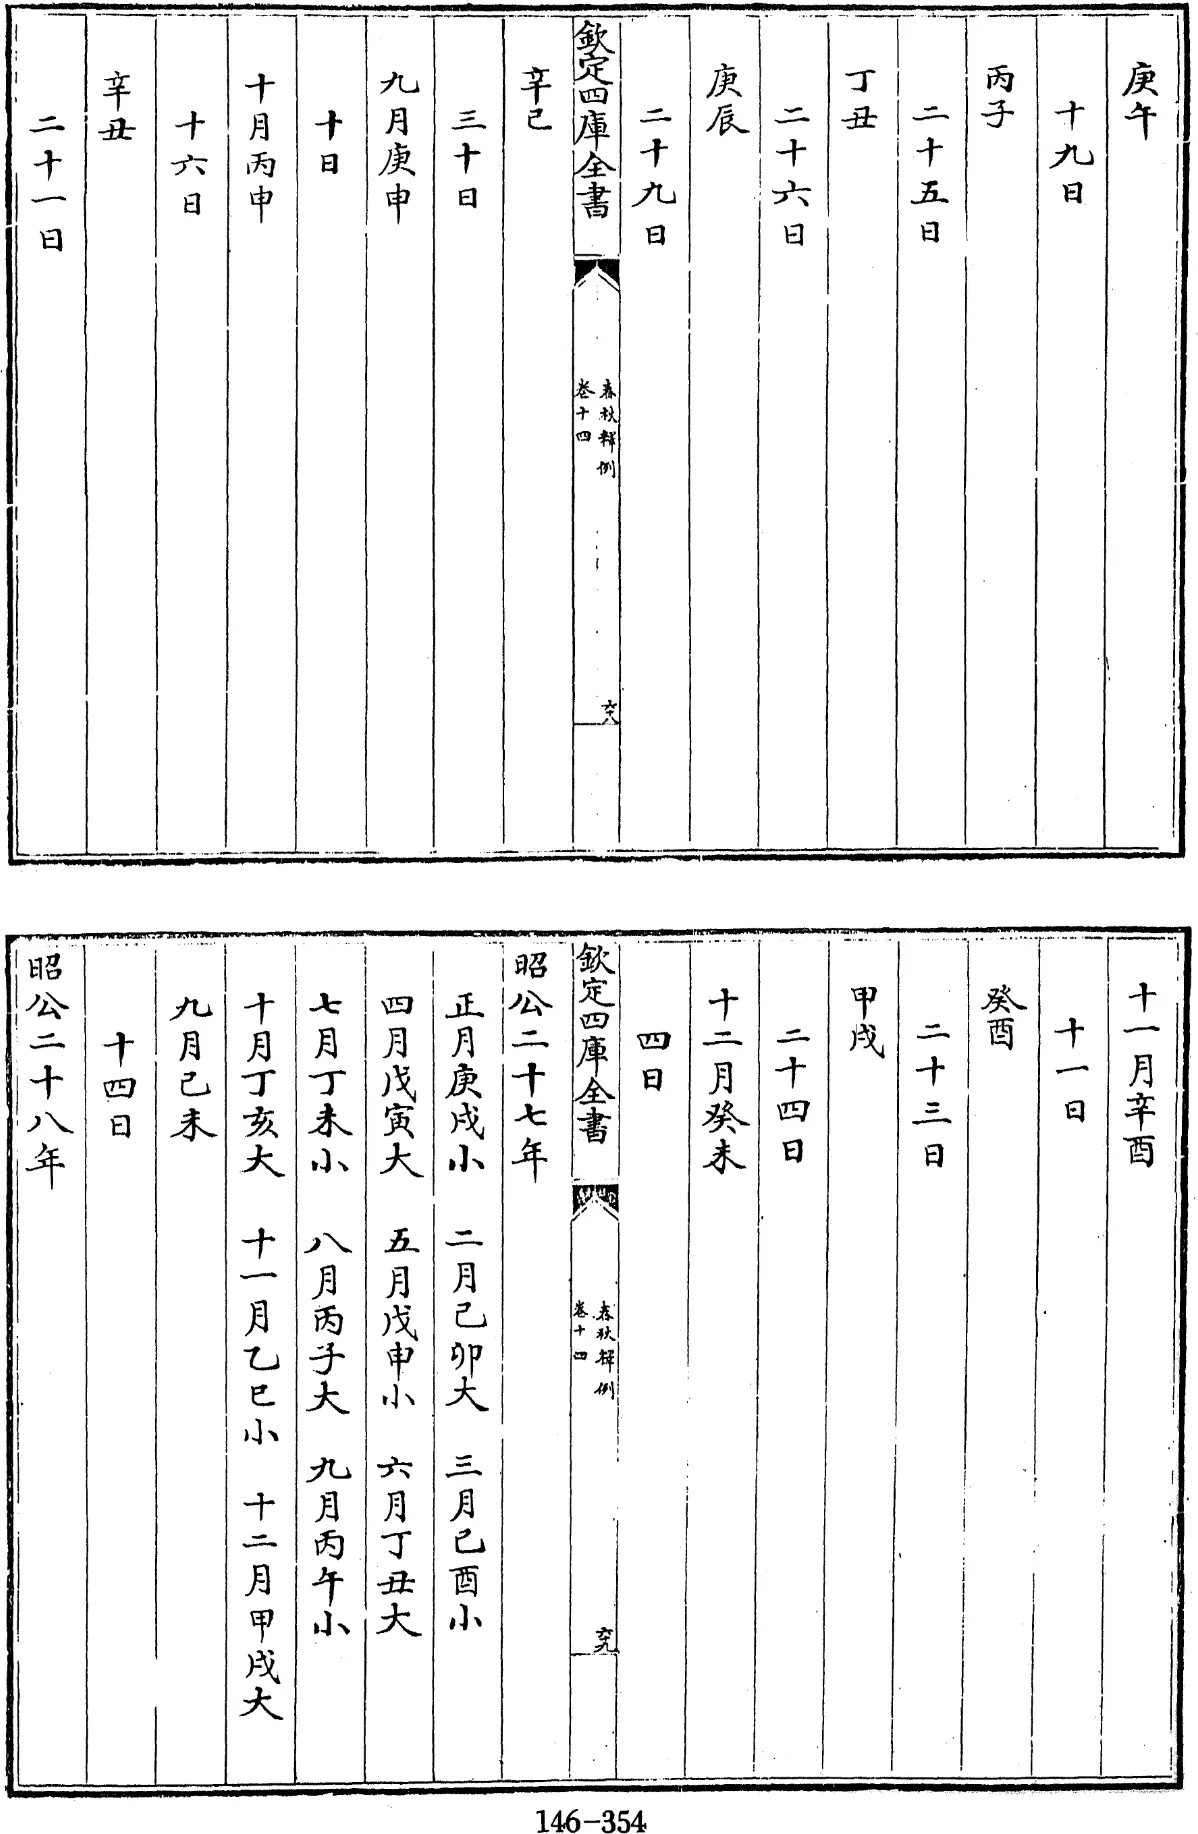 庚午
十九日
丙子
二十五日
丁丑
二十六日
庚辰
二十九日
欽定四庫全書
春秋釋例
卷十四
六十八
辛已
三十日
九月庚申
十日
十月丙申
十六日
辛丑
二十一日
十一月辛酉
十一日
癸酉
二十三日
甲戌
二十四日
十二月癸未
四日
欽定四庫全書
春秋釋例
卷十四
六十九
昭公二十七年
正月庚戌小 二月己卯大 三月己酉小
四月戊寅大 五月戊申小 六月丁丑大
七月丁未小 八月丙子大 九月丙午小
十月丁亥大 十一月乙巳小 十二月甲戌大
九月己未
十四日
昭公二十八年
146-354